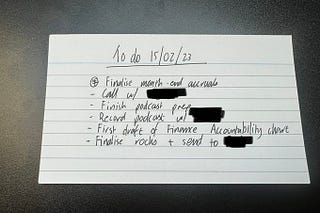 To do 15/02/23
* Finalise month-end accruals
- Call w/
- Finish podcast prep
- Record podcast w/
- First draft of Finance Accountability chart
- Finalise rocks + send to